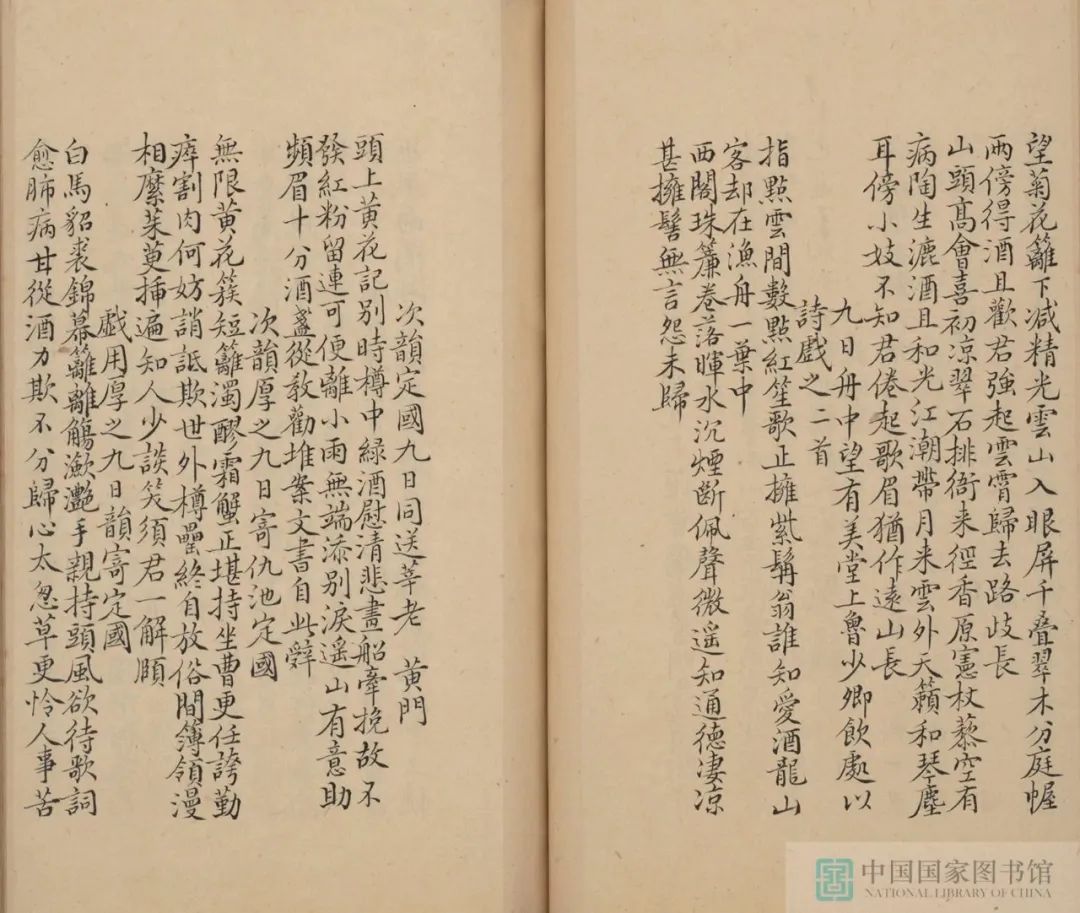 望菊花籬下減精光雲山入眼屏千叠翠木分庭幄
兩傍得酒且歡君強起雲霄歸去路歧長
山頭高會喜初凉翠石排衙来徑香原憲杖藜空有
病陶生漉酒且和光江潮帶月来雲外天籟和琴塵
耳傍小妓不知君倦起歌眉猶作遠山長
九日舟中望有美堂上魯少卿飲處以
詩戲之二首
指點雲間數點紅笙歌止擁紫髯翁誰知愛酒龍山
客却在漁舟一葉中
西閣珠簾卷落暉水沉煙斷佩聲微遥知通德凄凉
甚擁髻無言怨未歸
次韻定國九日同送莘老 黄門
頭上黄花記别時樽中緑酒慰清悲畫船牽挽故不
發紅粉留連可便離小雨無端添别淚遥山有意助
頻眉十分酒盞從教勸堆案文書自此辤
次韻厚之九日寄仇池定國
無限黄花簇短籬濁醪霜蟹正堪持坐曹更任誇勤
瘁割肉何妨誚詆欺世外樽罍終自放俗間簿領漫
相縻茱萸揷遍知人少談笑須君一解頤
戲用厚之九日韻寄定國
白馬貂裘錦幕籬離觴瀲灩手親持頭風欲待歌詞
愈肺病甘從酒力欺不分歸心太怱草更怜人事苦
中国国家图书馆
NATIONAL LIBRARY OF CHINA